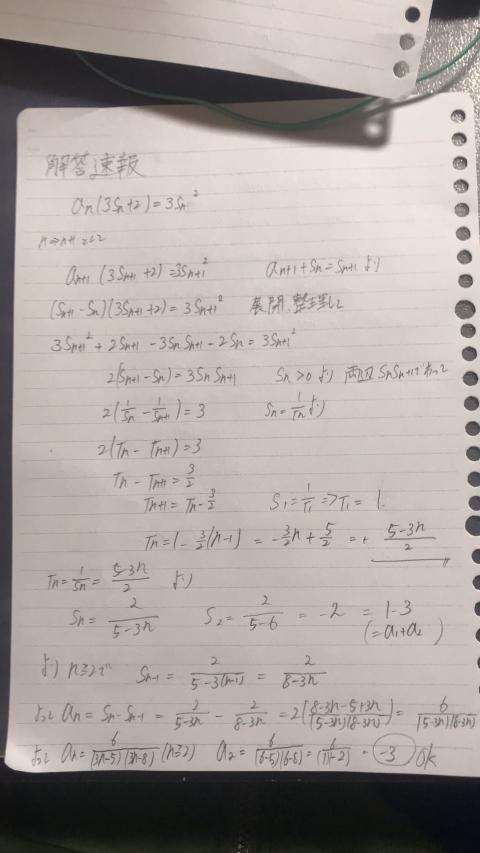 解答速報
an(3Sn+2)=3Sn²
n⇒n+1として
an+1(3Sn+1+2)=3Sn+1² an+1+Sn=Sn+1より
(Sn+1-Sn)(3Sn+1+2)=3Sn+1² 展開、整理して
3Sn+1²+2Sn+1-3SnSn+1-2Sn=3Sn+1²
2(Sn+1-Sn)=3SnSn+1 Sn>0より 両辺SnSn+1でわって
2(1/Sn-1/Sn+1)=3 Sn=1/Tnより
2(Tn-Tn+1)=3
Tn-Tn+1=3/2
Tn+1=Tn-3/2 S1=1/T1⇒T1=1.
Tn=1-3/2(n-1)=-3/2n+5/2=+(5-3n)/2
Tn=1/Sn=(5-3n)/2 より
Sn=2/(5-3n) S2=2/(5-6)=-2=1-3
(=a1+a2)
より n≧2で Sn-1=2/(5-3(n-1))=2/(8-3n)
よって an=Sn-Sn-1=2/(5-3n)-2/(8-3n)=2((8-3n-5+3n)/(5-3n)(8-3n))=6/(5-3n)(8-3n)
よって an=6/(3n-5)(3n-8)(n≧2) a2=6/(6-5)(6-8)=6/(1)(-2)=-3 OK